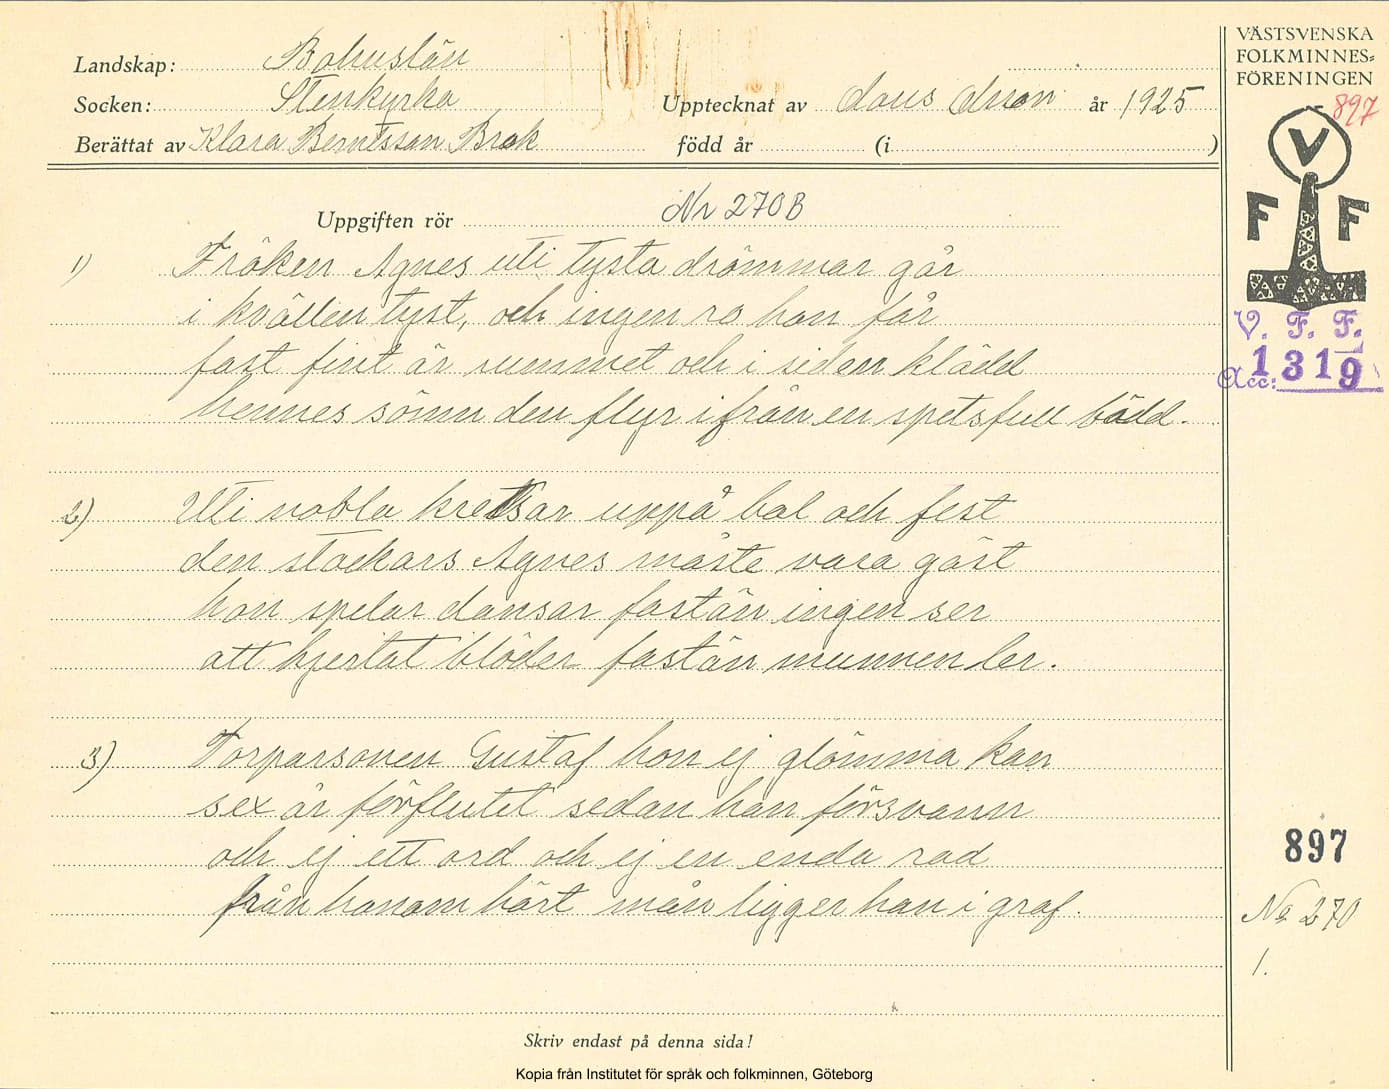 Landskap: Bohuslän
Socken: Stenkyrka
Upptecknat av Claus Olsson år 1925
Berättat av Klara Berntsson Brok
född år (i )
VÄSTSVENSKA
FOLKMINNES=
FÖRENINGEN
897
V
F F
V. F. F.
Acc: 1319
Uppgiften rör Nr 270B
1) Fröken Agnes uti tysta drömmar går
i kvällen tyst, och ingen ro hon får
fast fint är rummet och i siden klädd
hennes sömn den flyr ifrån en spetsfull bädd.
2) Uti nobla kretsar uppå bal och fest
den stackars Agnes måste vara gäst
hon spelar dansar fastän ingen ser
att hjertat blöder fastän munnen ler.
3) Torparsonen Gustaf hon ej glömma kan
sex år förflutit sedan han försvann
och ej ett ord och ej en enda rad
från honom hört mån ligger han i graf.
897
No 270
1.
Skriv endast på denna sida!
Kopia från Institutet för språk och folkminnen, Göteborg